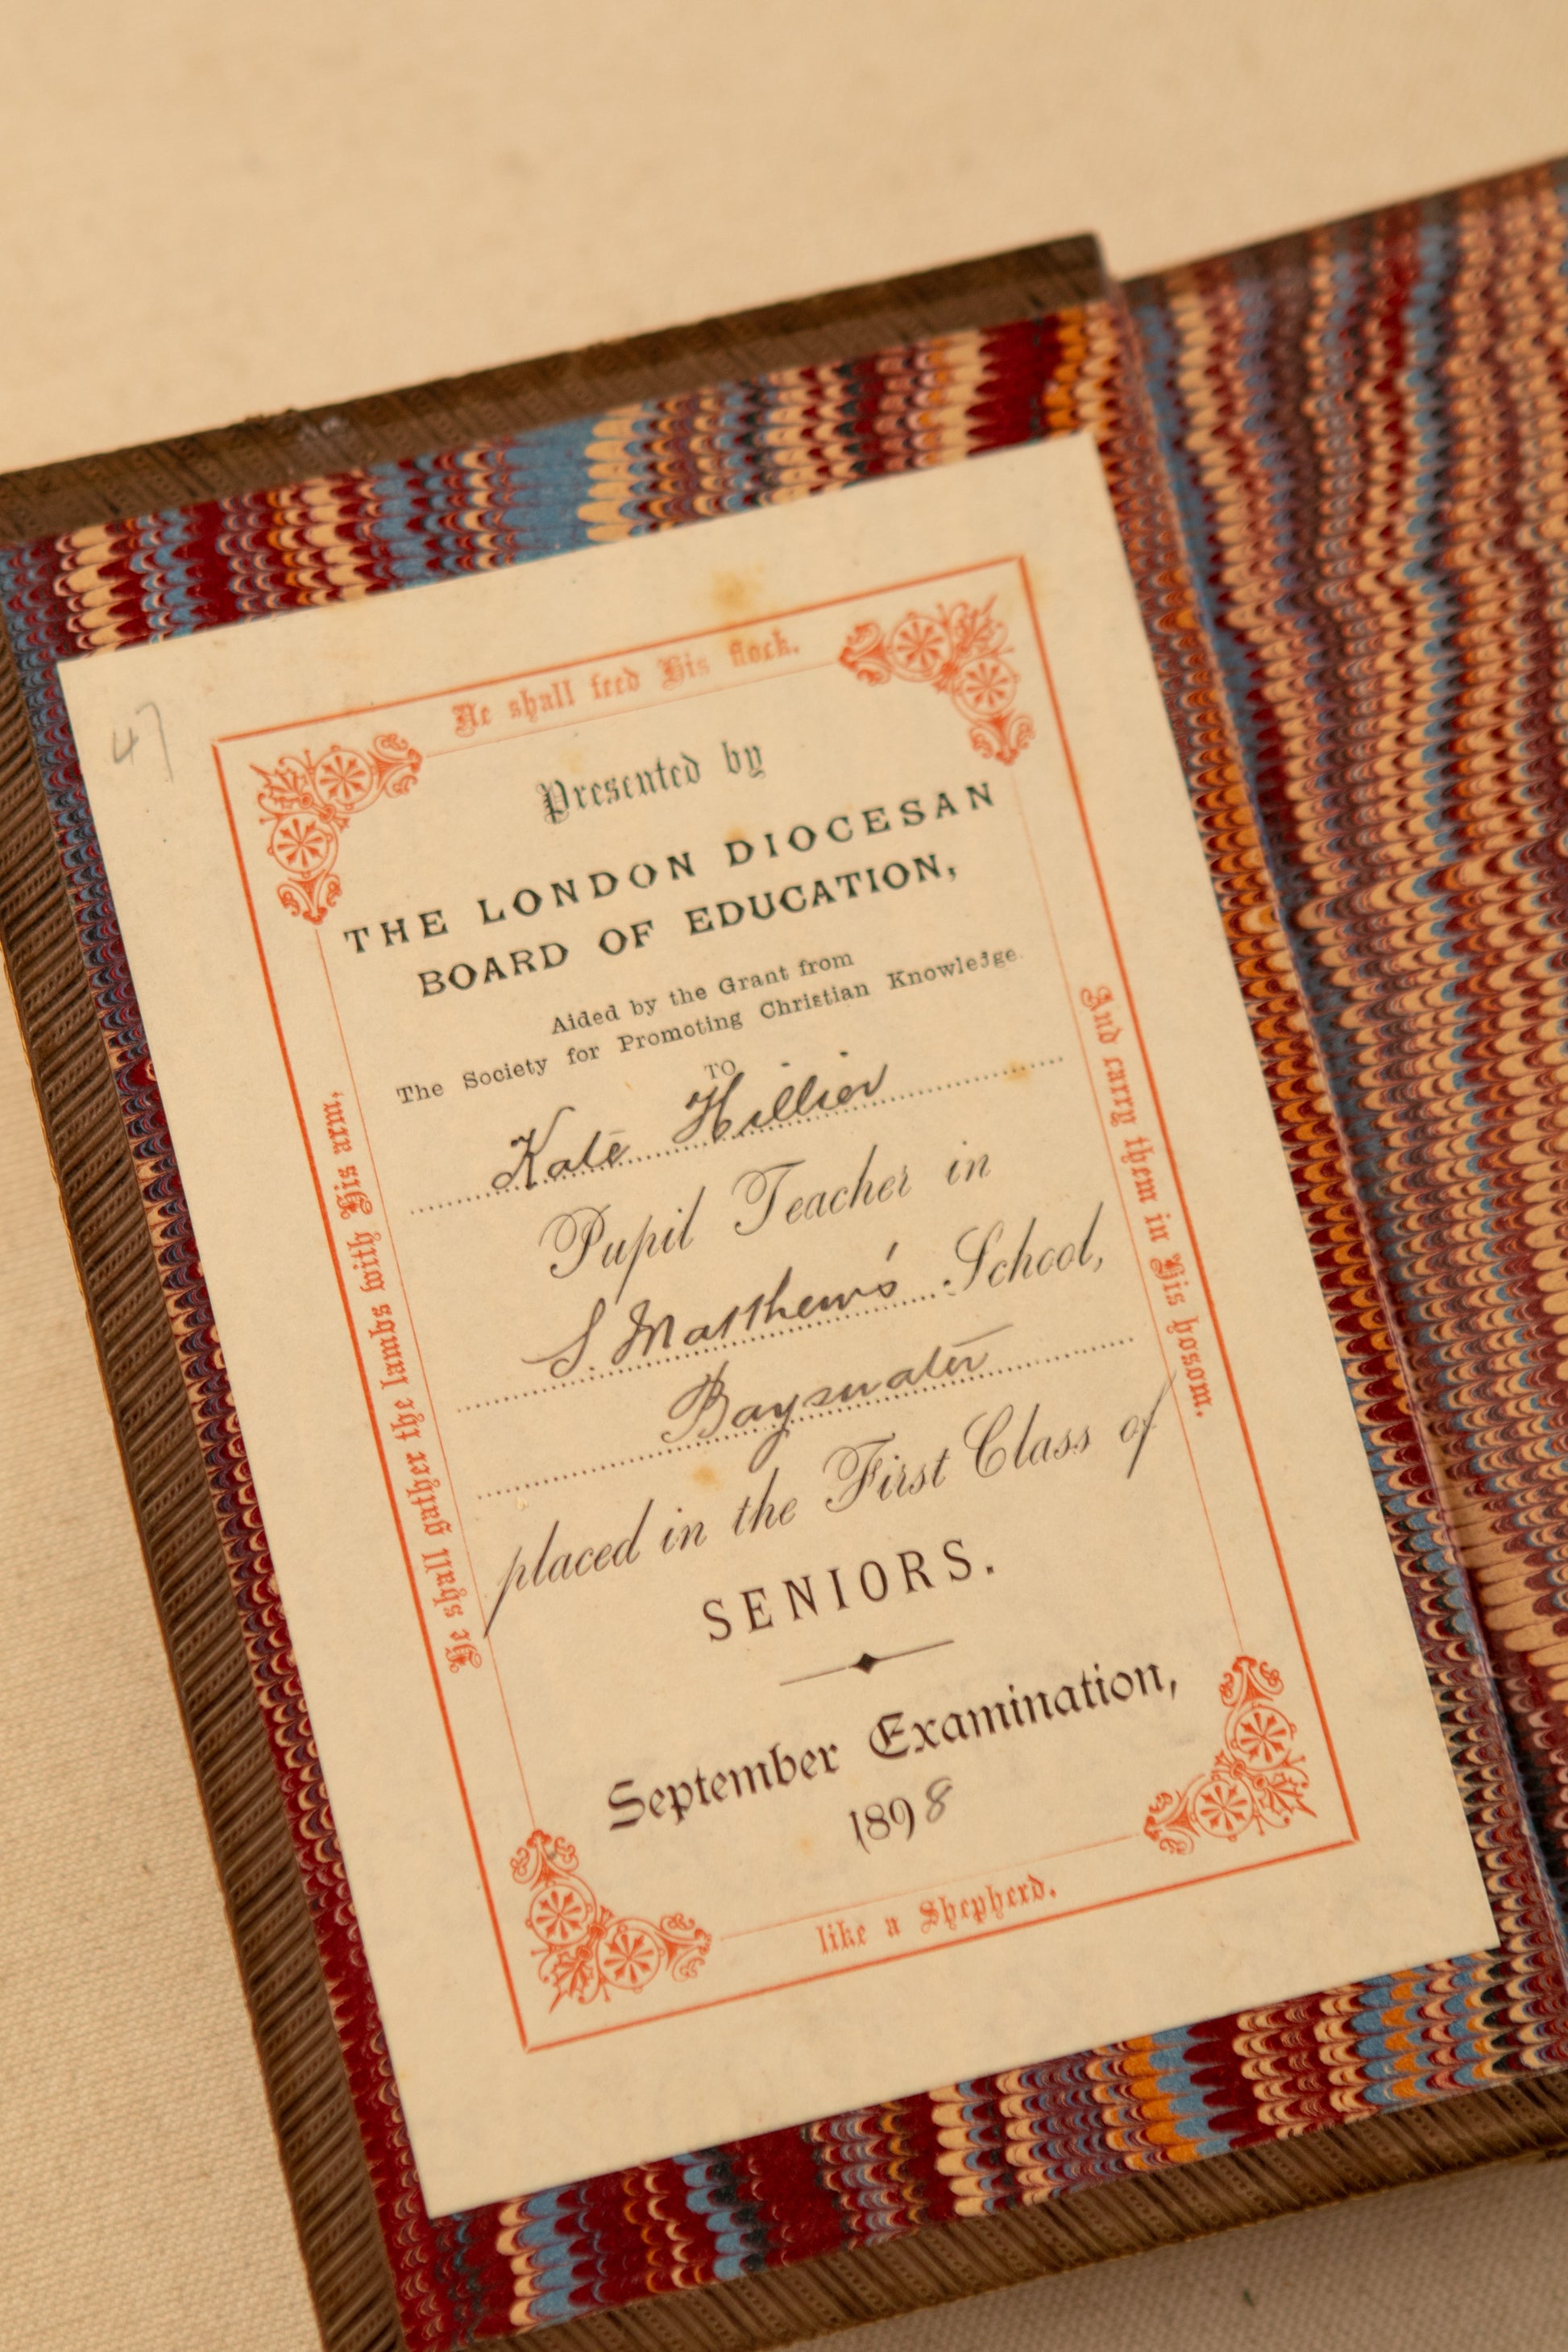 47
He shall feed His flock.
Presented by
THE LONDON DIOCESAN
BOARD OF EDUCATION,
Aided by the Grant from
The Society for Promoting Christian Knowledge.
TO
Kate Hillier
Pupil Teacher in
S. Matthew's School,
Bayswater
placed in the First Class of
SENIORS.
September Examination,
1898
He shall gather the lambs with His arm,
And carry them in His bosom.
like a Shepherd.